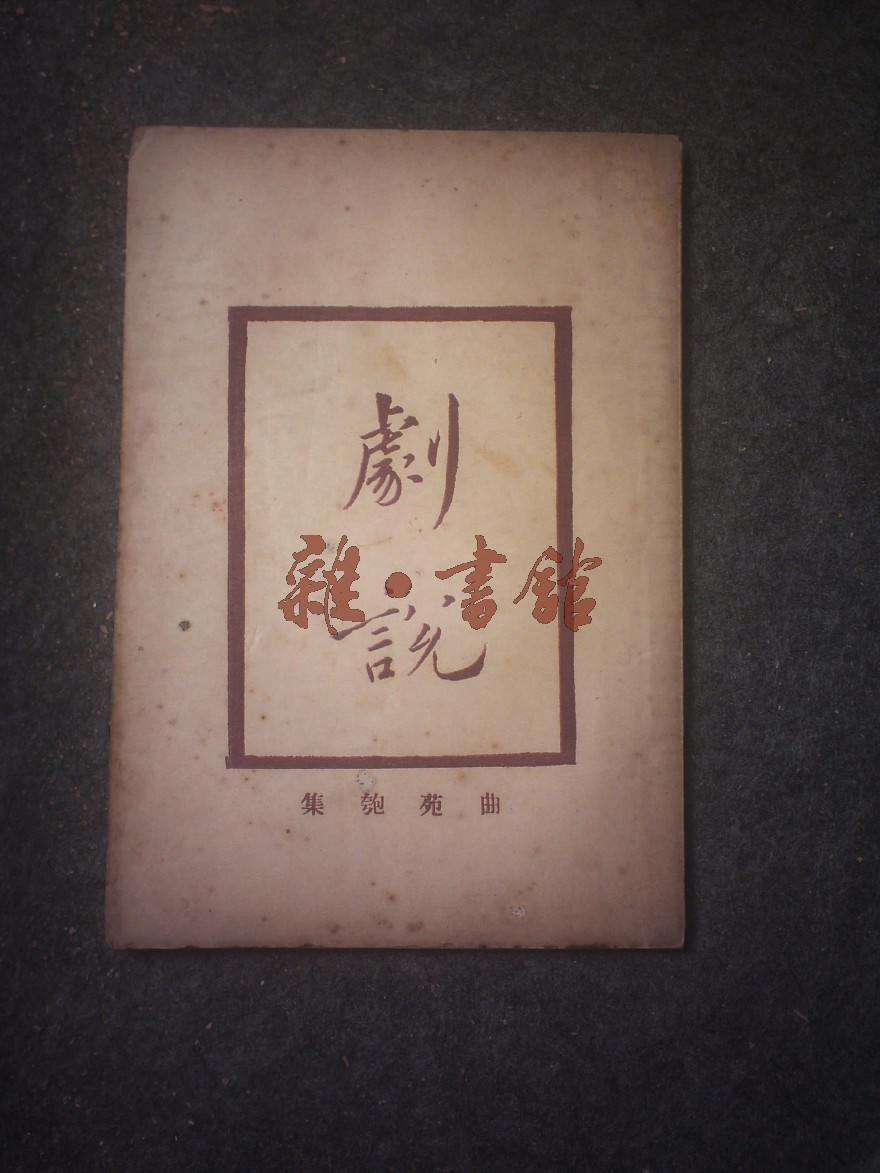 劇
說
雜•書館
集匏苑曲